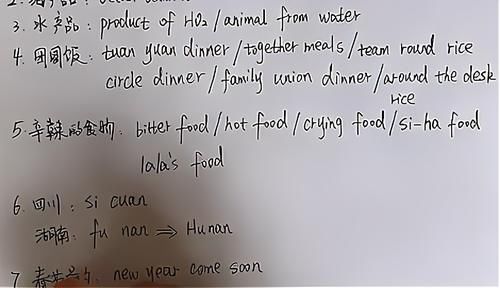 3. 水产品: product of HO₂ / animal from water
4. 团圆饭: tuan yuan dinner / together meals / team round rice
circle dinner / family union dinner / around the desk
rice
5. 辛辣的食物: bitter food / hot food / crying food / si-ha food
lala's food
6. 四川: si cuan
湖南: fu nan ⇒ Hunan
7. new year come soon